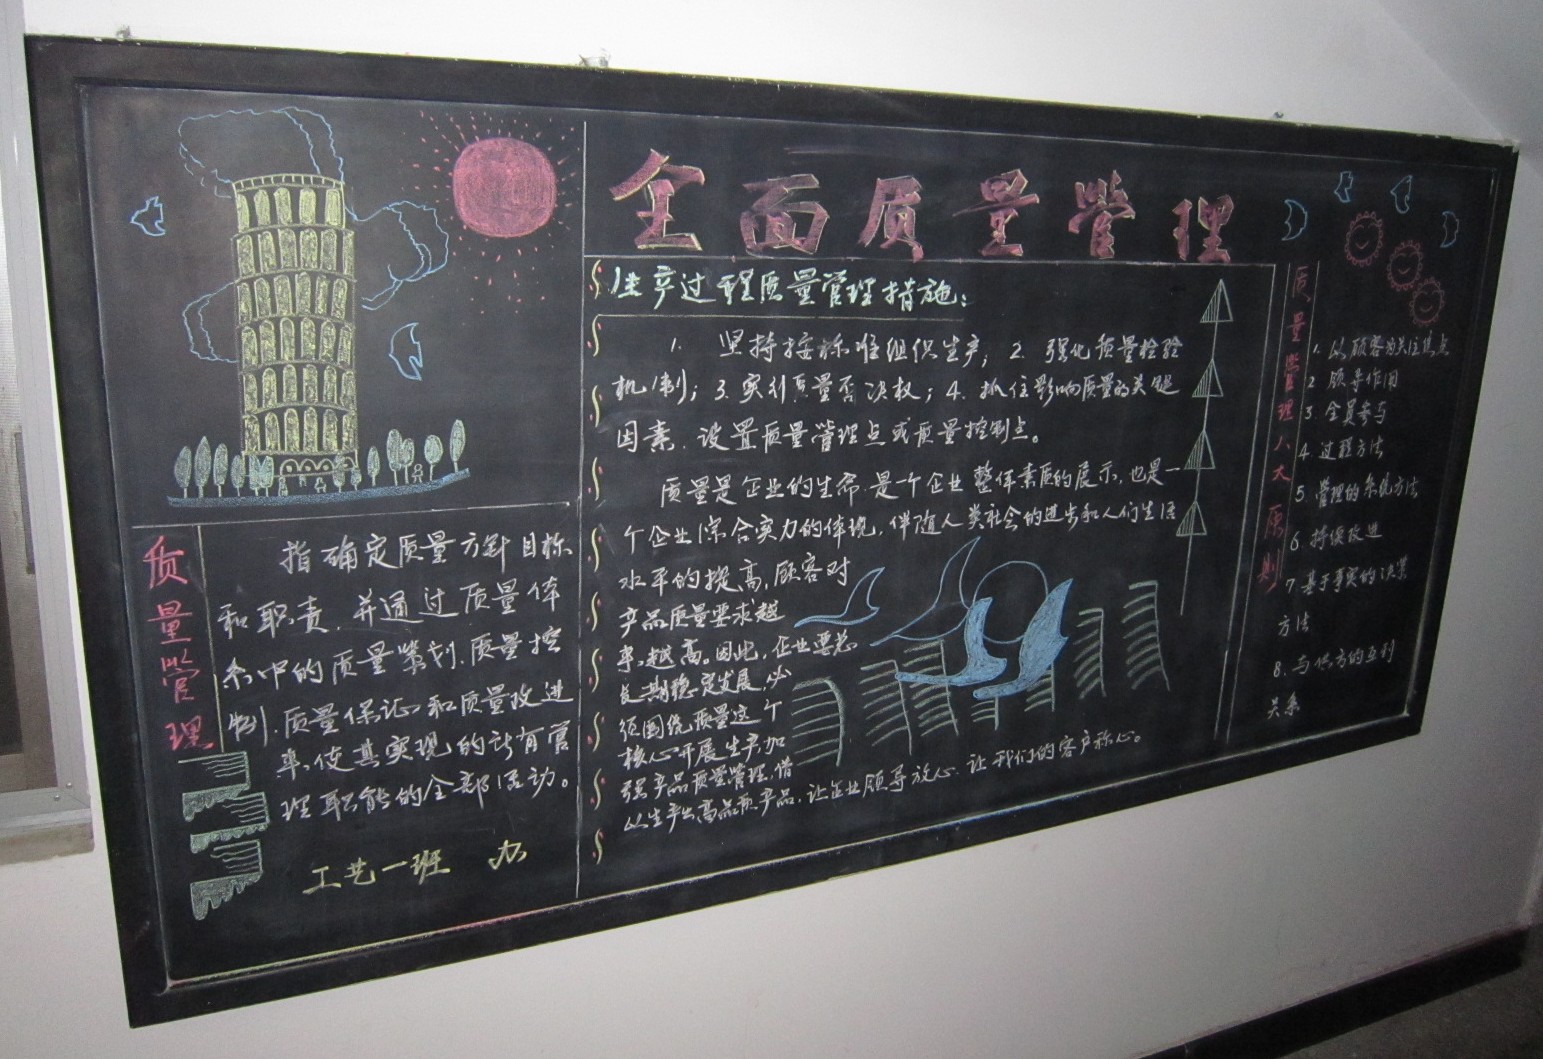 全面质量管理
生产过程质量管理措施：
1. 坚持按标准组织生产；2. 强化质量检验
机制；3. 实行质量否决权；4. 抓住影响质量的关键
因素，设置质量管理点或质量控制点。
质量是企业的生命，是一个企业整体素质的展示，也是一
个企业综合实力的体现，伴随人类社会的进步和人们生活
水平的提高，顾客对
产品质量要求越
来越高。因此，企业要想
长期稳定发展，必
须围绕质量这个
核心开展生产，加
强产品质量管理，借
以生产出高品质产品，让企业领导放心，让我们的客户称心。
质量管理
指确定质量方针目标
和职责，并通过质量体
系中的质量策划，质量控
制，质量保证和质量改进
来使其实现的所有管
理职能的全部活动。
工艺一班 办
质量管理八大原则
1. 以顾客为关注焦点
2 领导作用
3 全员参与
4. 过程方法
5. 管理的系统方法
6 持续改进
7 基于事实的决策
方法
8. 与供方的互利
关系